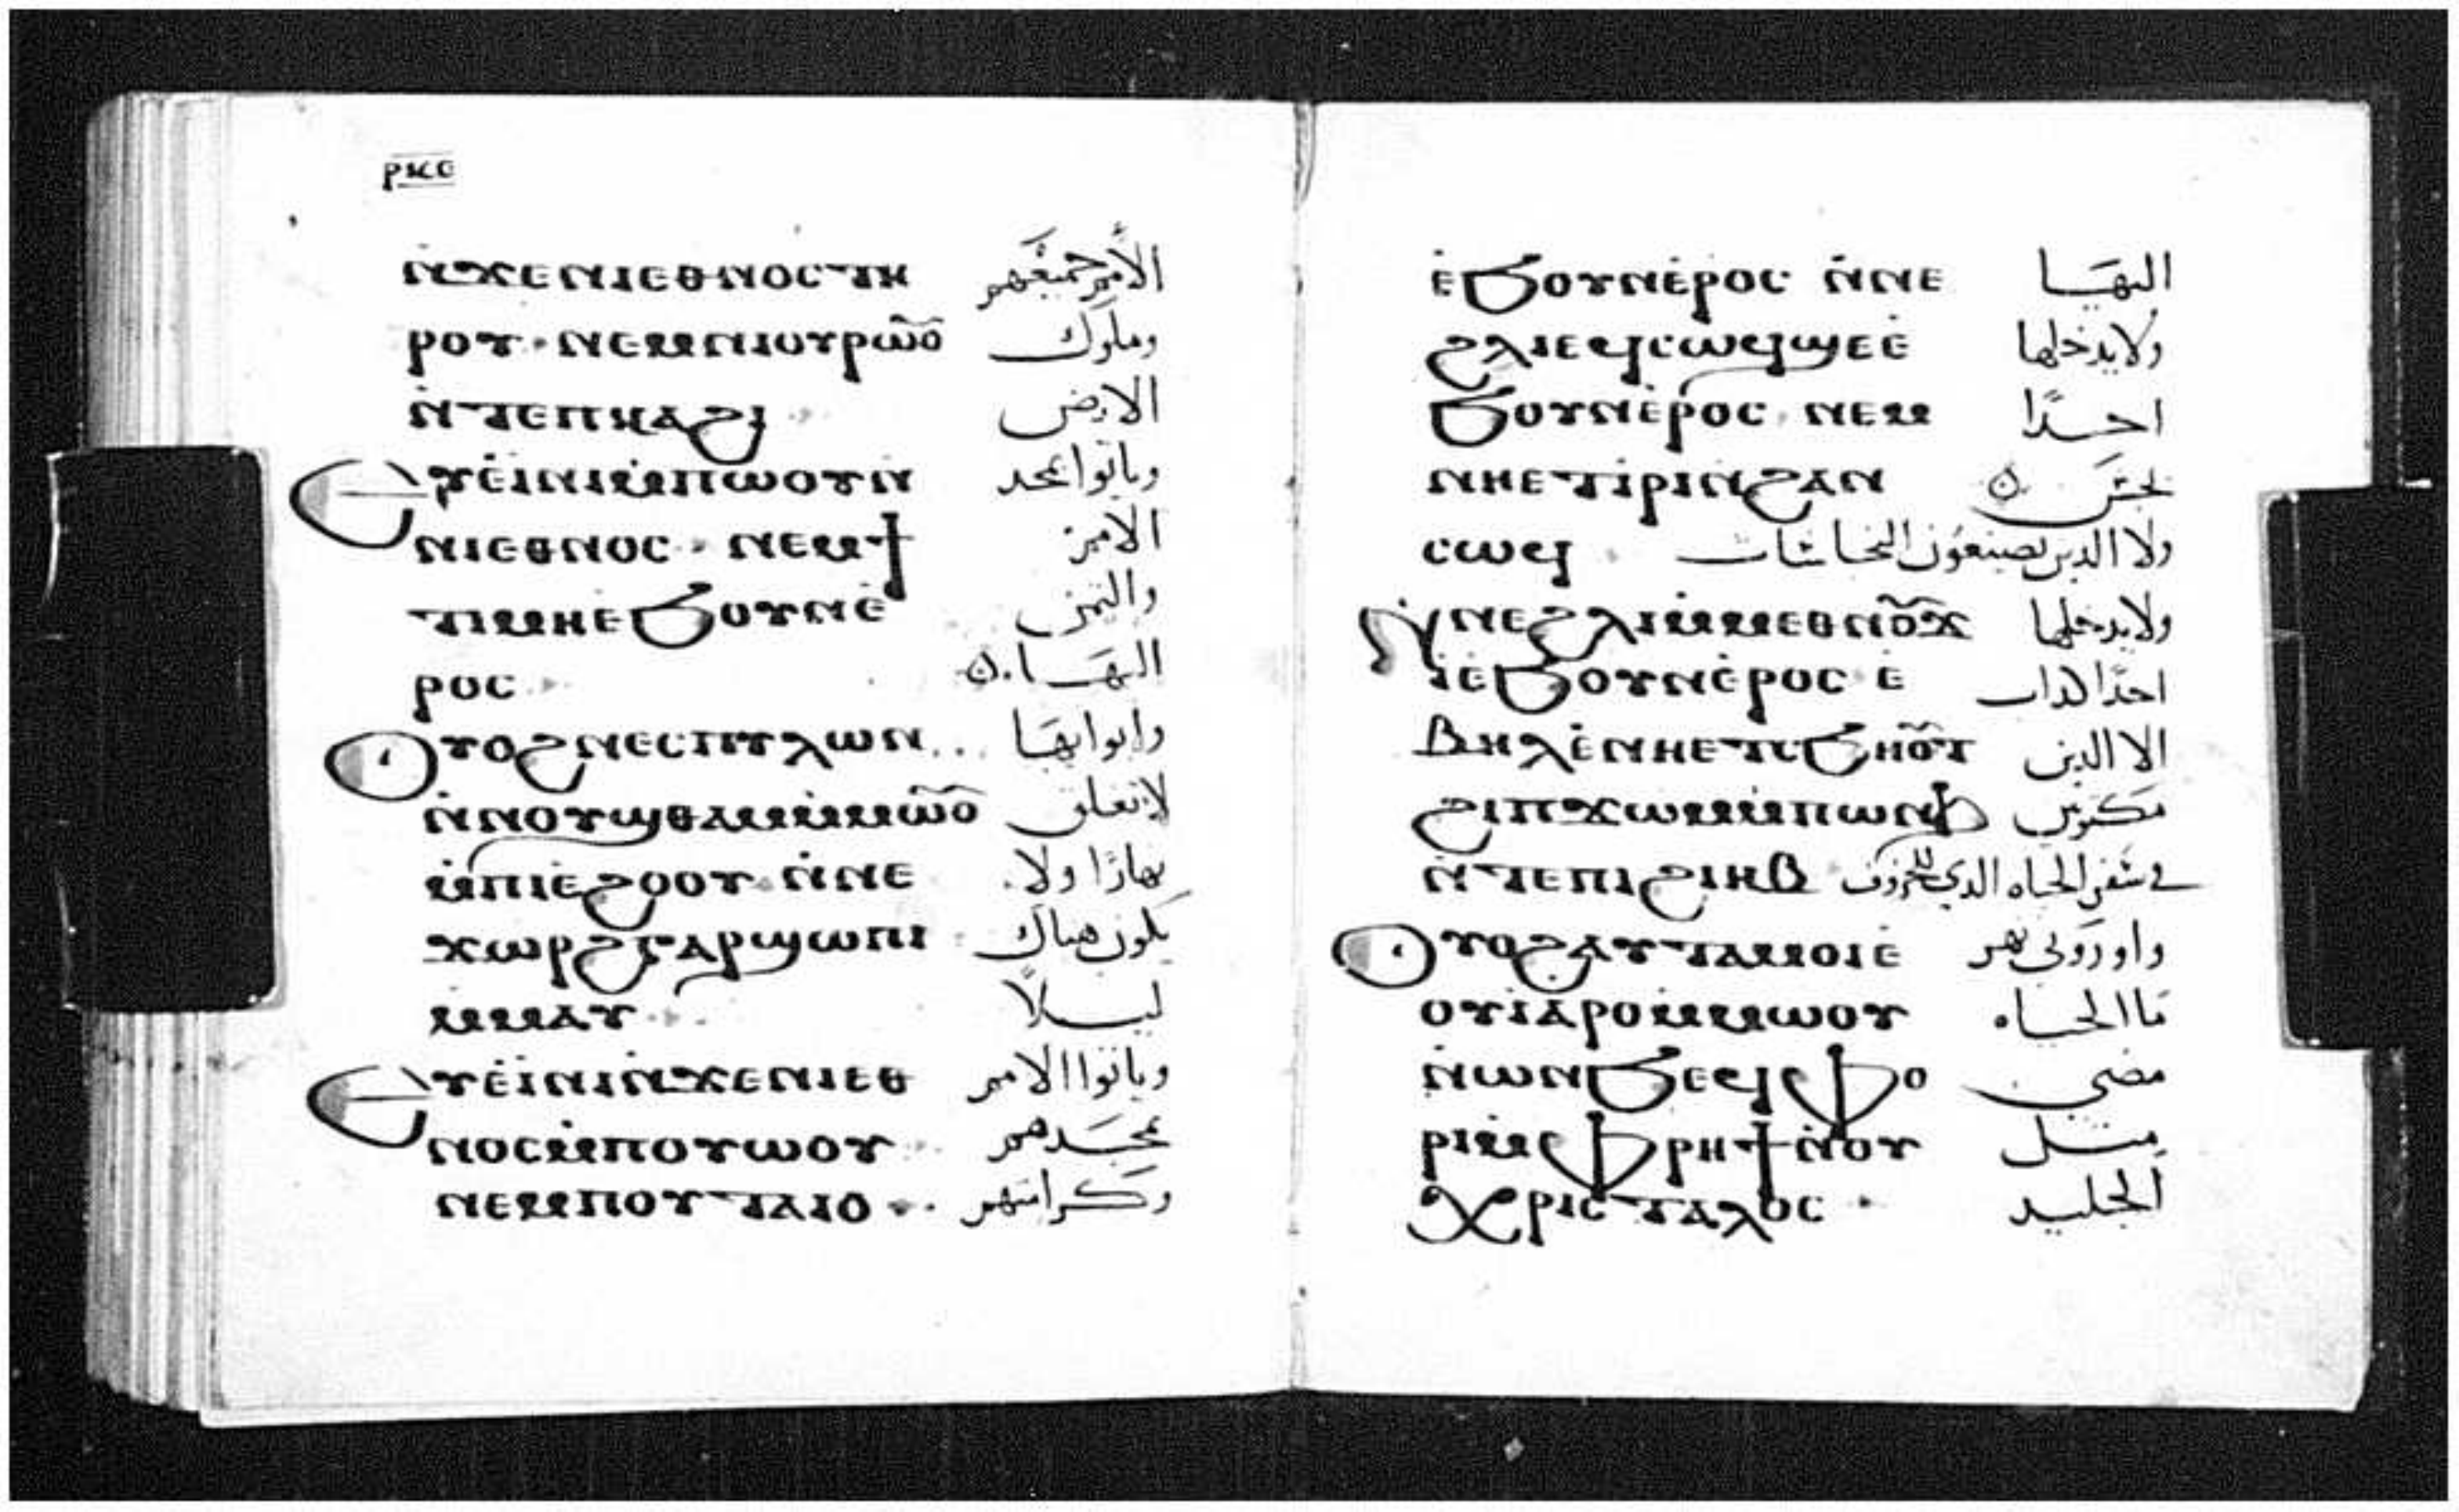 ⲣⲕⲉ
ⲛ̇ϫⲉⲛⲓⲉⲑⲛⲟⲥⲧⲏ الامم جميعهم
ⲣⲟⲩ · ⲛⲉⲙⲛⲓⲟⲩⲣⲱⲟ̄ⲩ وملوك
ⲛ̇ⲧⲉⲡⲕⲁϩⲓ الارض
Ⲉⲩⲉ̇ⲓⲛⲓⲙ̇ⲡⲱⲟⲩⲛ̇ وياتوا بمجد
ⲛⲓⲉⲑⲛⲟⲥ · ⲛⲉⲙϯ الامم
ⲧⲓⲙⲏⲉϧⲟⲩⲛⲉ̇ والثمن
ⲣⲟⲥ اليها
Ⲟⲩⲟϩⲛⲉⲥⲡⲩⲗⲱⲛ وابوابها
ⲛ̇ⲛⲟⲩϣⲑⲁⲙⲙ̇ⲙⲱⲟ̄ⲩ لا تغلق
ⲙ̇ⲡⲓⲉϩⲟⲟⲩ ⲛ̇ⲛⲉ نهارًا ولا
ⲭⲱⲣϩⲅⲁⲣϣⲱⲡⲓ يكون هناك
ⲙ̇ⲙⲁⲩ ليلًا
Ⲉⲩⲉ̇ⲓⲛⲓⲛ̇ϫⲉⲛⲓⲉⲑ وياتوا الامم
ⲛⲟⲥⲙ̇ⲡⲟⲩⲱⲟⲩ بمجدهم
ⲛⲉⲙⲡⲟⲩⲧⲁⲓⲟ وكرامتهم
ⲉ̇ϧⲟⲩⲛⲉ̇ⲣⲟⲥ ⲛ̇ⲛⲉ اليها
ϩⲗⲓⲉϥⲥⲱϥϣⲉⲉ̇ ولا يدخلها
ϧⲟⲩⲛⲉ̇ⲣⲟⲥ ⲛⲉⲙ احدًا
ⲛⲏⲉⲧⲓ̇ⲣⲓⲛ̇ϩⲁⲛ نجس
ⲥⲱϥ ولا الدين يصنعون النجاسات
Ⲛ̇ⲛⲉϩⲗⲓⲙ̇ⲙⲉⲑⲛⲟ̄ⲩϫ ولا يدخلها
ⲓⲉ̇ϧⲟⲩⲛⲉ̇ⲣⲟⲥ ⲉ̇ احدًا كداب
ⲃⲏⲗⲉ̇ⲛⲏⲉⲧⲥϧⲏⲟ̄ⲩⲧ الا الدين
ϩⲓⲡϫⲱⲙⲙ̇ⲡⲱⲛϧ مكتوبين
ⲛ̇ⲧⲉⲡⲓϩⲓⲏⲃ في سفر الحياه الدي للخروف
Ⲟⲩⲟϩⲁⲩⲧⲁⲙⲟⲓⲉ̇ واوروني نهر
ⲟⲩⲓ̇ⲁⲣⲟⲙ̇ⲙⲱⲟⲩ ما الحياه
ⲛ̇ⲱⲛϧⲉϥⲫⲟ مضي
ⲣⲓⲙ̇ⲫⲣⲏϯⲛ̇ⲟⲩ مثل
ⲭⲣⲓⲥⲧⲁⲗⲟⲥ الجليد